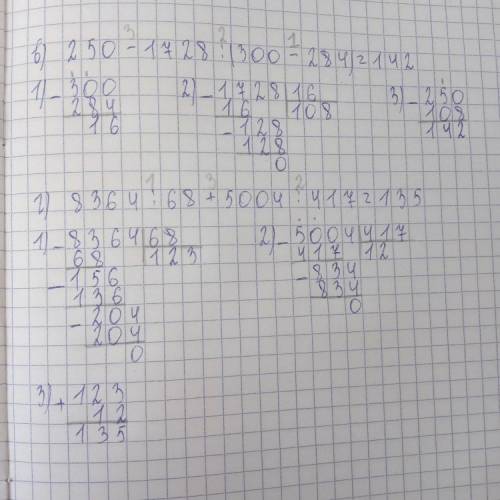 3 2 1
б) 250 - 1728 : (300 - 284) = 142
1) - 300 2) - 1728 | 16 3) - 250
284 16 108 108
16 - 128 142
128
0
1 3 2
г) 8364 : 68 + 5004 : 417 = 135
1) - 8364 | 68 2) - 5004 | 417
68 123 417 12
- 156 - 834
136 834
- 204 0
204
0
3) + 123
12
135